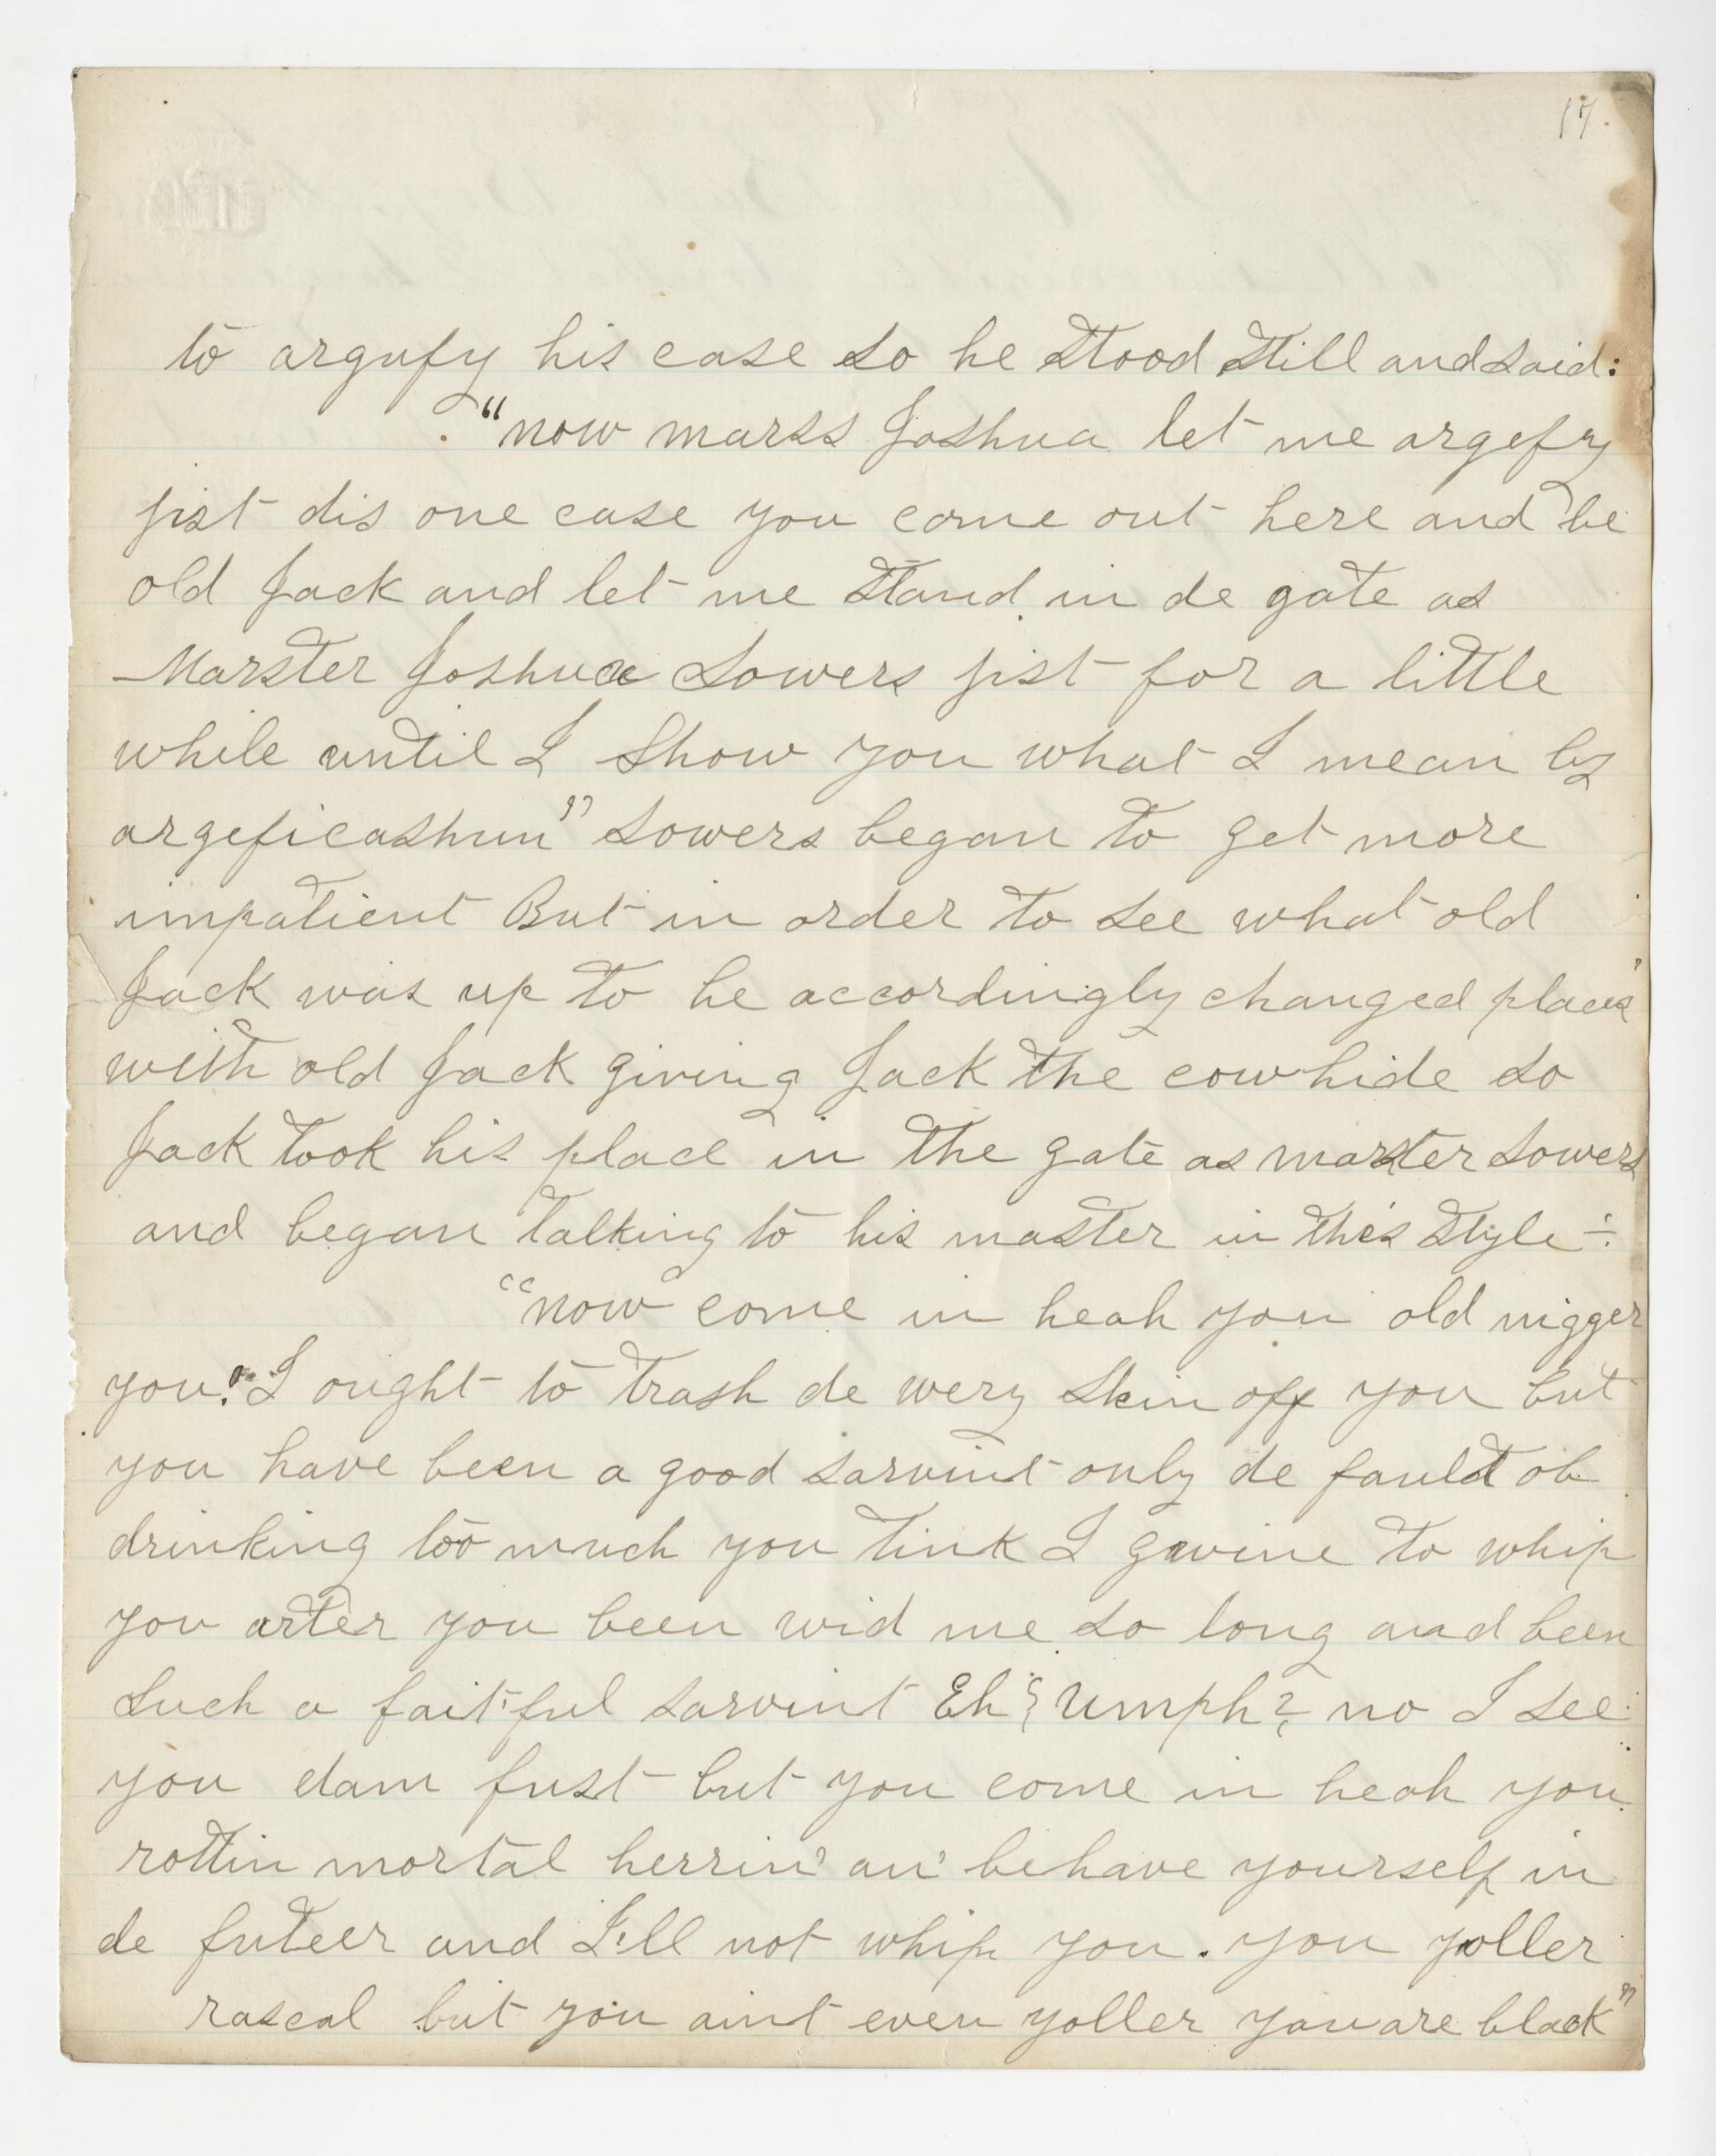 17.
to argufy his case so he stood still and said:
"now marss Joshua let me argefy
jist dis one case you come out here and be
old Jack and let me stand in de gate as
Marster Joshua Sowers jist for a little
while until I show you what I mean by
argeficashun" Sowers began to get more
impatient But in order to see what old
Jack was up to he accordingly changed places
with old Jack giving Jack the cowhide so
Jack took his place in the gate as marster Sowers
and began talking to his master in this style:
"now come in heah you old nigger
you! I ought to trash de wery skin off you but
you have been a good sarvint only de fauldt ob
drinking too much you tink I gwine to whip
you arter you been wid me so long and been
such a faitful sarvint Eh? Umph? no I see
you dam fust but you come in heah you
rottin mortal herrin' an' behave yourself in
de futeer and I'll not whip you. you yoller
rascal but you aint even yoller you are black"